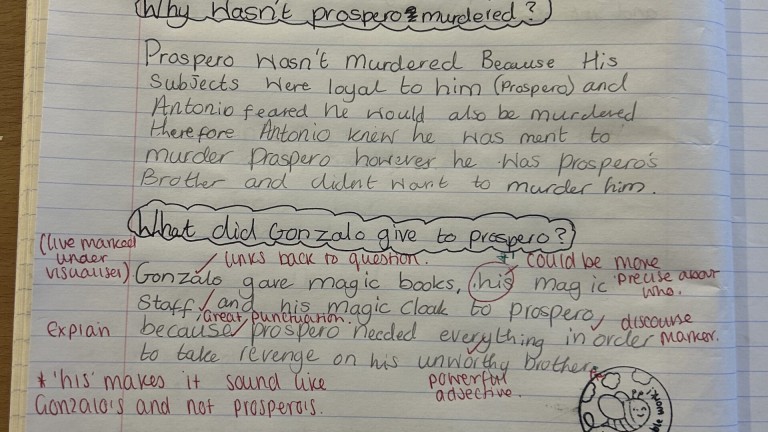 Why Wasn't prospero murdered?
Prospero Wasn't murdered Because His
subjects were loyal to him (Prospero) and
Antonio feared he would also be murdered
therefore Antonio knew he was ment to
murder Prospero however he was prospero's
Brother and didnt want to murder him.
What did Gonzalo give to prospero?
(live marked under visualiser)
links back to question.
* could be more precise about who.
Gonzalo gave magic books, his magic
Staff, and his magic Cloak to prospero,
Great punctuation.
discourse marker.
Explain
because prospero needed everything in order
to take revenge on his unworthy brother.
powerful adjective.
* 'his' makes it sound like
Gonzalo's and not prospero's.